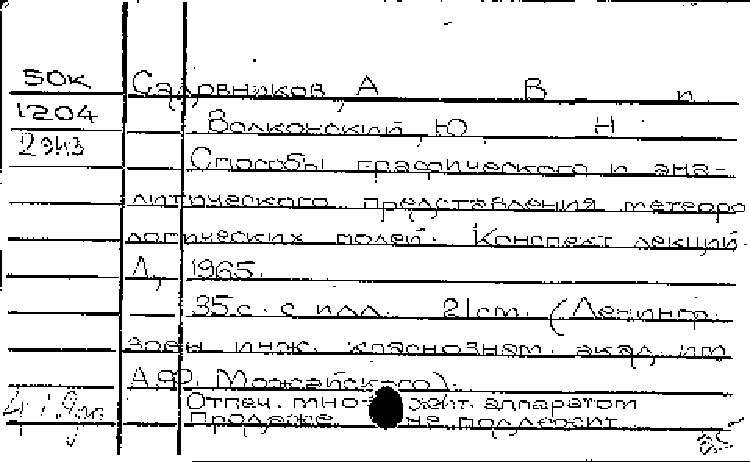 50к Садовников, А В и
1204 Волконский, Ю Н
2 экз Способы графического и ана-
литического представления метеоро
логических полей. Конспект лекций.
Л., 1965.
35 с. с илл. 21 cm. (Ленингр.
воен инж. краснознам. акад. им
А.Ф. Можайского).
Отпеч. множит. аппаратом
Продаже не подлежит